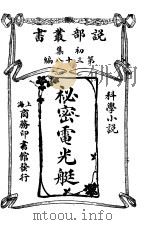 說部叢書
初集
第三十八編
科學小說
秘密電光艇
上海商務印書館發行
mtoou.info